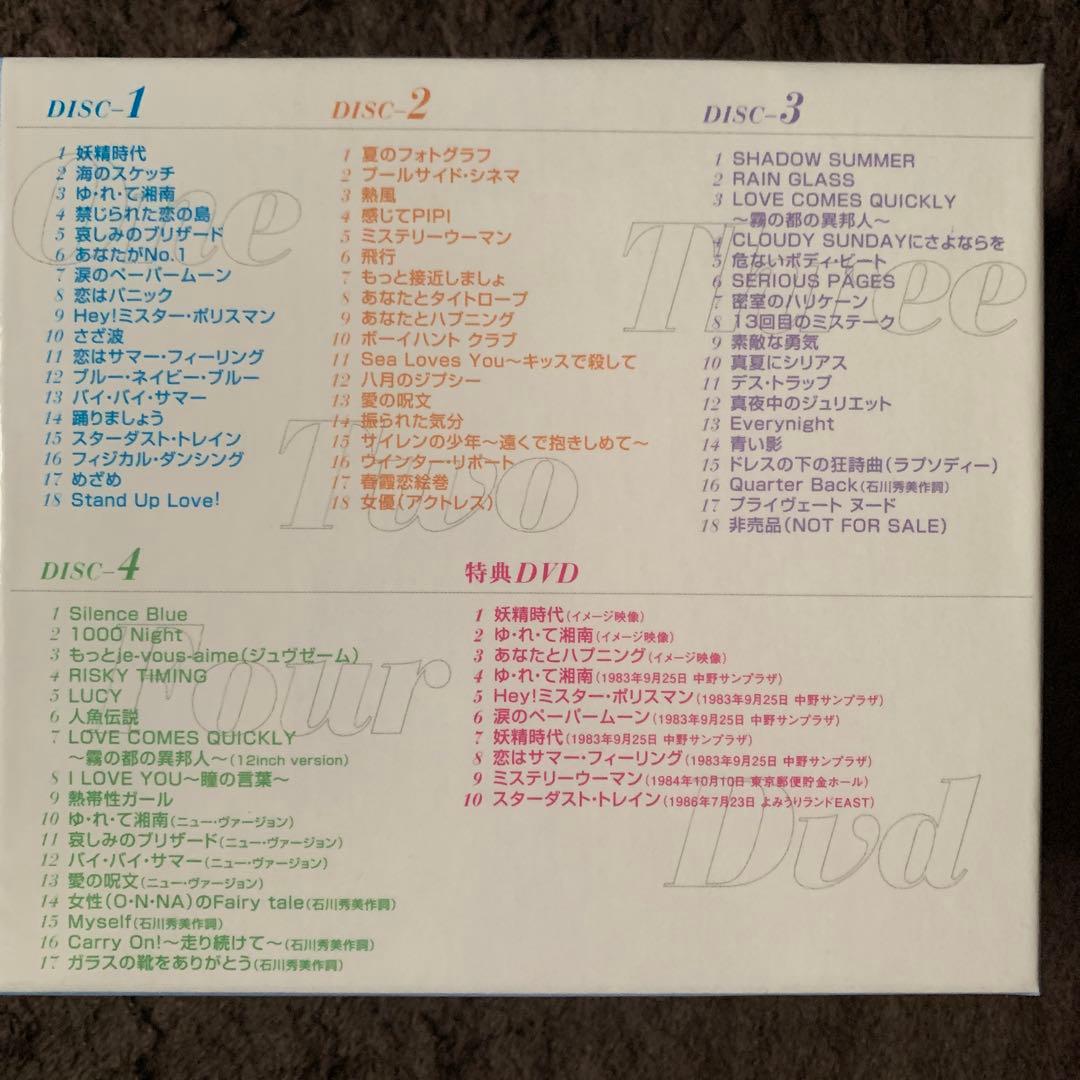 DISC-1
1 妖精時代
2 海のスケッチ
3 ゆ・れ・て湘南
4 禁じられた恋の島
5 哀しみのブリザード
6 あなたがNo.1
7 涙のペーパームーン
8 恋はパニック
9 Hey!ミスター・ポリスマン
10 さざ波
11 恋はサマー・フィーリング
12 ブルー・ネイビー・ブルー
13 バイ・バイ・サマー
14 踊りましょう
15 スターダスト・トレイン
16 フィジカル・ダンシング
17 めざめ
18 Stand Up Love!
One
DISC-2
1 夏のフォトグラフ
2 プールサイド・シネマ
3 熱風
4 感じてPIPI
5 ミステリーウーマン
6 飛行
7 もっと接近しましょ
8 あなたとタイトロープ
9 あなたとハプニング
10 ボーイハント クラブ
11 Sea Loves You〜キッスで殺して
12 八月のジプシー
13 愛の呪文
14 振られた気分
15 サイレンの少年〜遠くで抱きしめて〜
16 ウインター・リポート
17 春霞恋絵巻
18 女優(アクトレス)
Two
DISC-3
1 SHADOW SUMMER
2 RAIN GLASS
3 LOVE COMES QUICKLY
〜霧の都の異邦人〜
4 CLOUDY SUNDAYにさよならを
5 危ないボディ・ビート
6 SERIOUS PAGES
7 密室のハリケーン
8 13回目のミステーク
9 素敵な勇気
10 真夏にシリアス
11 デス・トラップ
12 真夜中のジュリエット
13 Everynight
14 青い影
15 ドレスの下の狂詩曲(ラプソディー)
16 Quarter Back(石川秀美作詞)
17 プライヴェート ヌード
18 非売品(NOT FOR SALE)
Three
DISC-4
1 Silence Blue
2 1000 Night
3 もっとje-vous-aime(ジュヴゼーム)
4 RISKY TIMING
5 LUCY
6 人魚伝説
7 LOVE COMES QUICKLY
〜霧の都の異邦人〜(12inch version)
8 I LOVE YOU〜瞳の言葉〜
9 熱帯性ガール
10 ゆ・れ・て湘南(ニュー・ヴァージョン)
11 哀しみのブリザード(ニュー・ヴァージョン)
12 バイ・バイ・サマー(ニュー・ヴァージョン)
13 愛の呪文(ニュー・ヴァージョン)
14 女性(O・N・NA)のFairy tale(石川秀美作詞)
15 Myself(石川秀美作詞)
16 Carry On!〜走り続けて〜(石川秀美作詞)
17 ガラスの靴をありがとう(石川秀美作詞)
Four
特典DVD
1 妖精時代(イメージ映像)
2 ゆ・れ・て湘南(イメージ映像)
3 あなたとハプニング(イメージ映像)
4 ゆ・れ・て湘南(1983年9月25日 中野サンプラザ)
5 Hey!ミスター・ポリスマン(1983年9月25日 中野サンプラザ)
6 涙のペーパームーン(1983年9月25日 中野サンプラザ)
7 妖精時代(1983年9月25日 中野サンプラザ)
8 恋はサマー・フィーリング(1983年9月25日 中野サンプラザ)
9 ミステリーウーマン(1984年10月10日 東京郵便貯金ホール)
10 スターダスト・トレイン(1986年7月23日 よみうりランドEAST)
Dvd